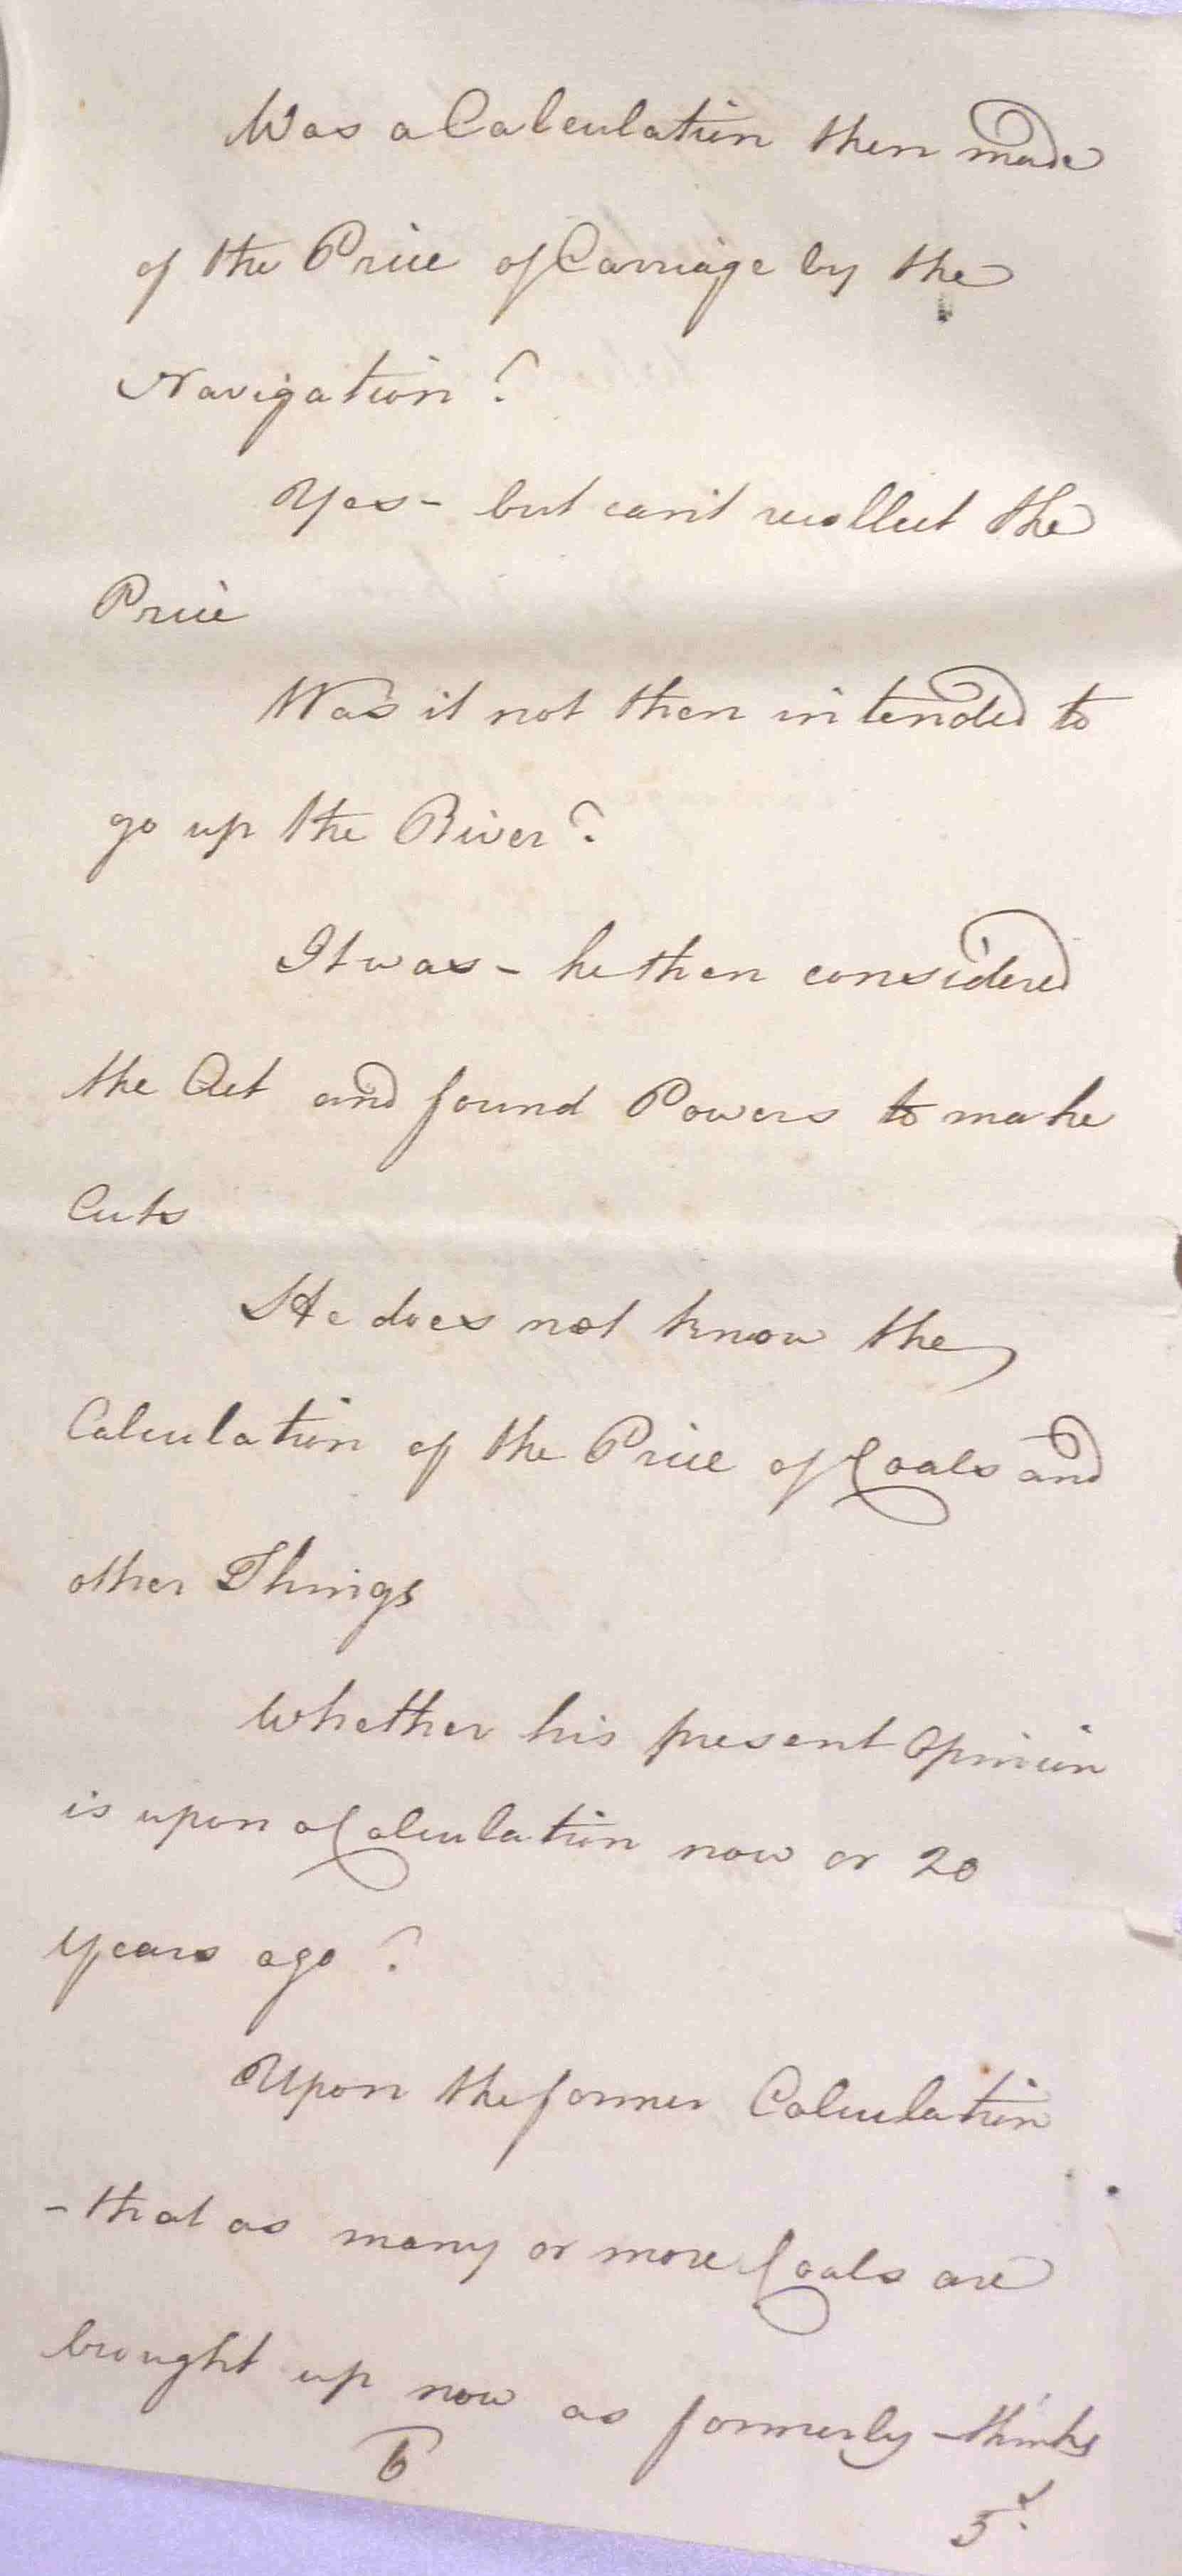 Was a Calculation then made
of the Price of Carriage by the
Navigation?
Yes - but can't recollect the
Price
Was it not then intended to
go up the River?
It was - he then considered
the Act and found Powers to make
Cuts
He does not know the
Calculation of the Price of Coals and
other Things
Whether his present Opinion
is upon a Calculation now or 20
years ago?
Upon the former Calculation
- that as many or more Coals are
brought up now as formerly - thinks
6